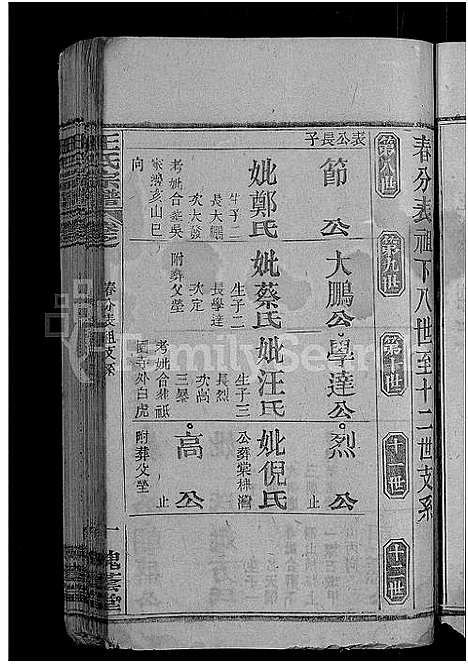 春分表祖下八世至十二世支系
第八世
第九世
第十世
十一世
十二世
表公長子
節公
妣鄭氏
生子二
長大鵬
次大發
考妣合葬吳
家灣亥山巳
向
大鵬公
妣蔡氏
生子二
長學達
次定
附葬父塋
學達公
妣汪氏
生子三
長烈
次尚
三杲
考妣合葬祇
園寺外白虎
烈公
妣倪氏
公葬棠梯灣
止
高公
止
附葬父塋
王氏宗譜
卷之
春分表祖支系
一
槐蔭堂
FamilySearch